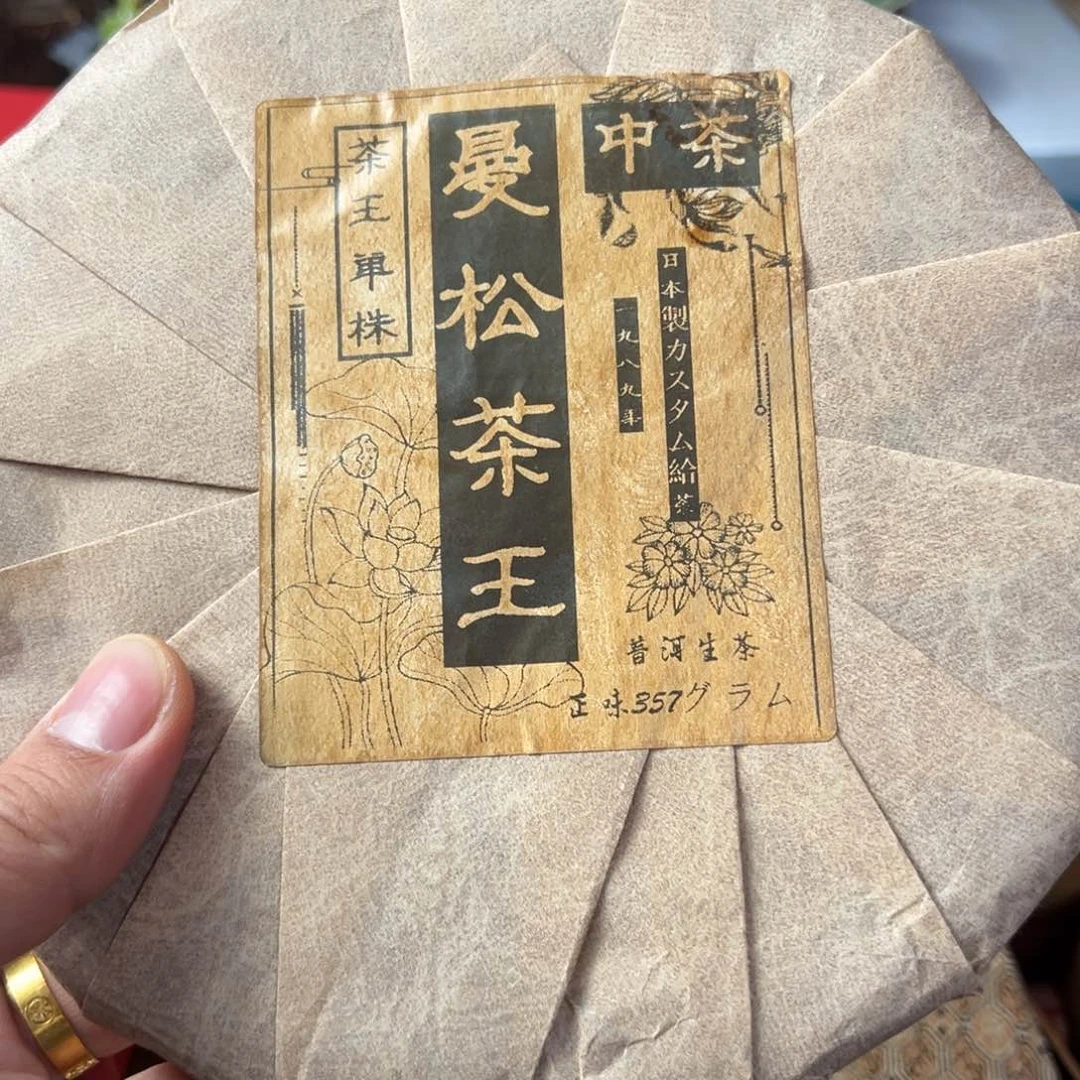 中茶
日本製カスタム給茶
一九八九年
曼松茶王
茶王单株
普洱生茶
正味357グラム